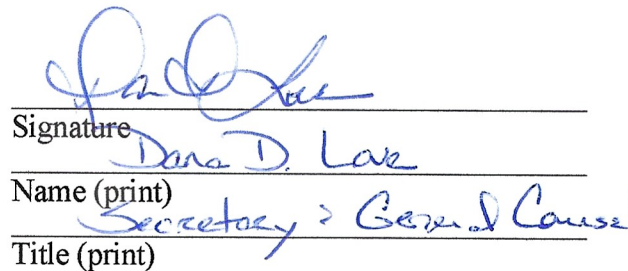 Dana D. Love
Signature
Dana D. Love
Name (print)
Secretary & General Counse
Title (print)